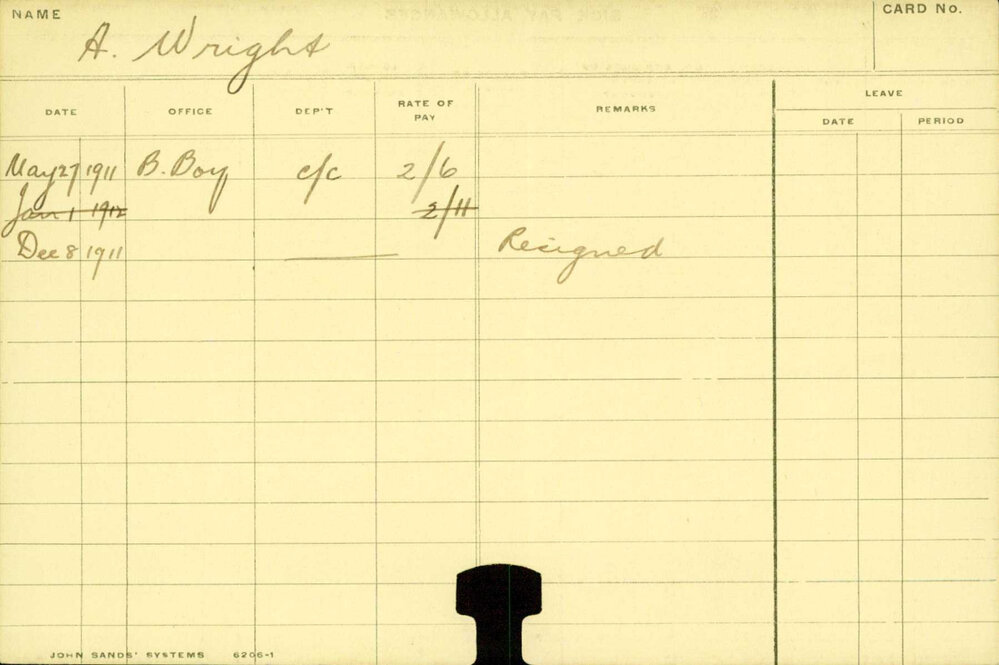 NAME
CARD No.
A. Wright
DATE OFFICE DEP'T RATE OF PAY REMARKS LEAVE
DATE PERIOD
May 27 1911 B. Boy c/c 2/6
Jan 1 1912 2/11
Dec 8 1911 Resigned
JOHN SANDS' SYSTEMS 6206-1